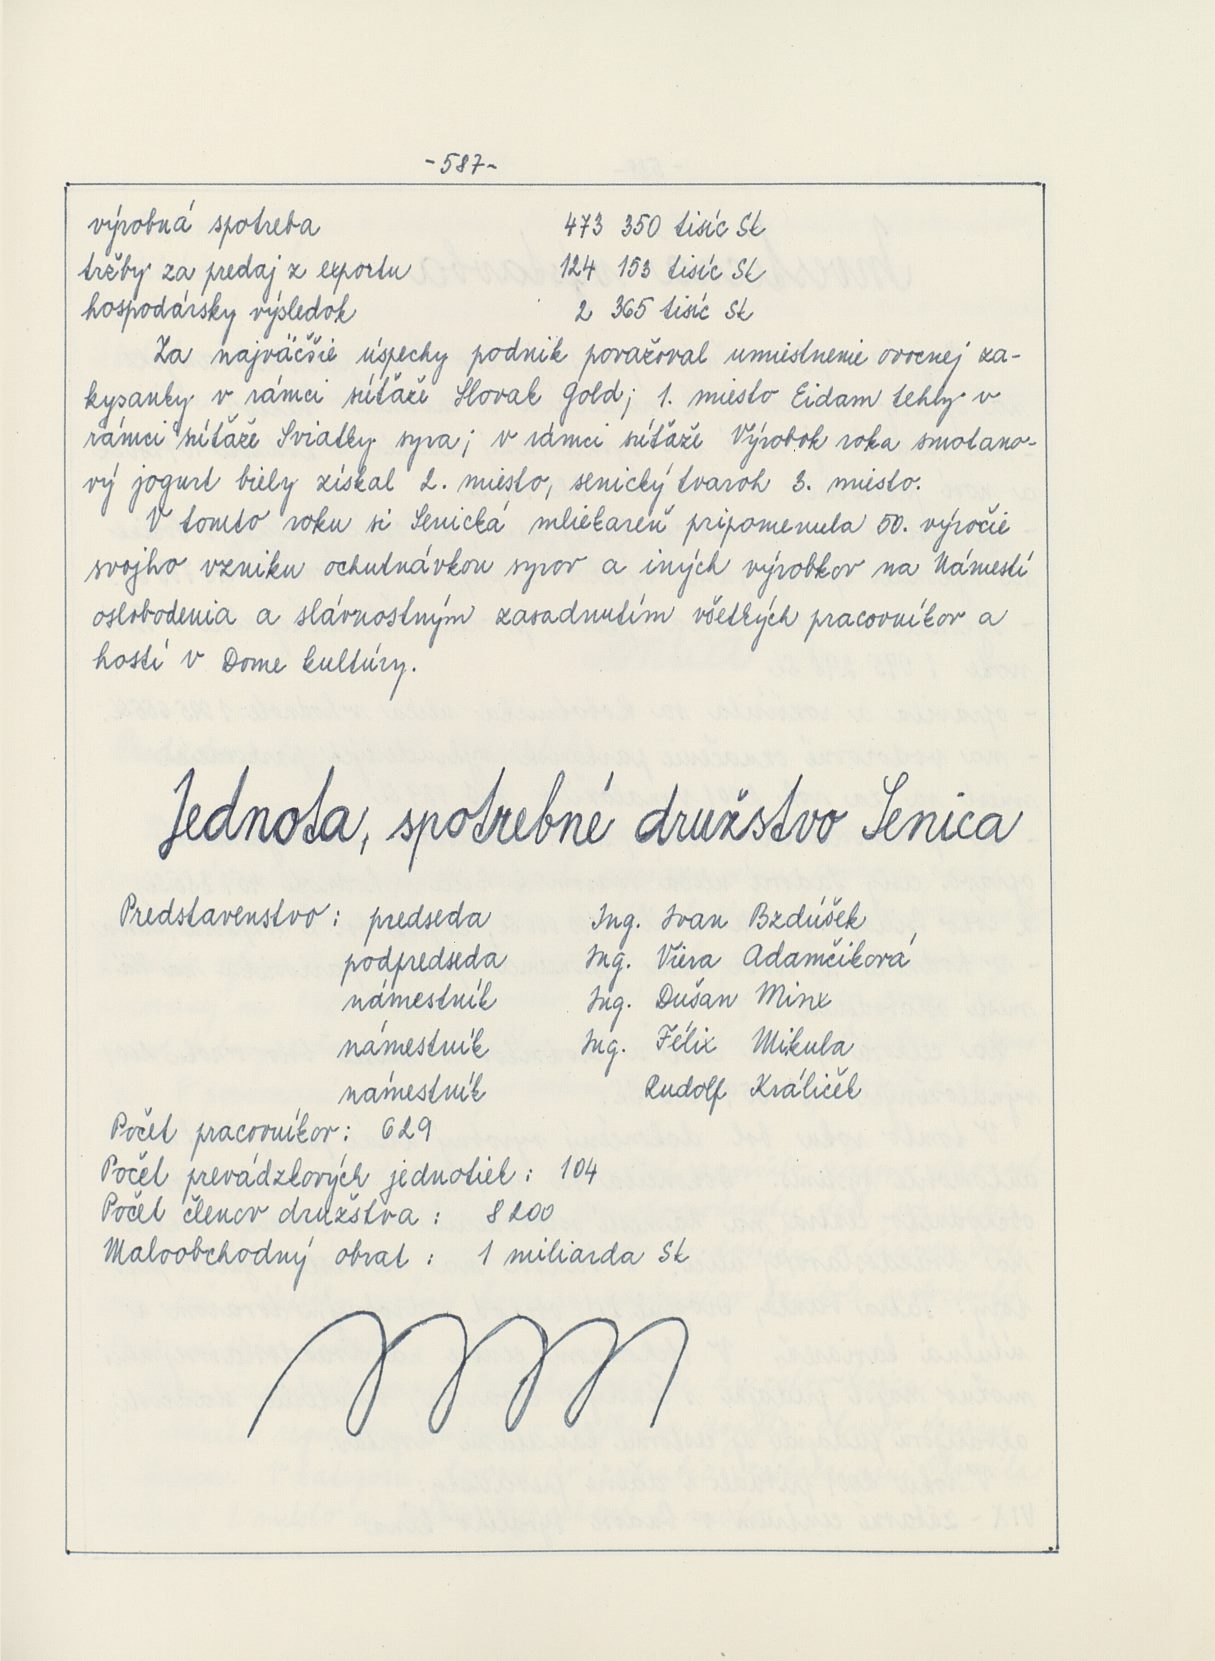 -587-
výrobná spotreba 473 350 tisíc Sk
tržby za predaj z exportu 124 153 tisíc Sk
hospodársky výsledok 2 365 tisíc Sk
Za najväčšie úspechy podnik považoval umiestnenie ovocnej za-
kysanky v rámci súťaže Slovak Gold; 1. miesto Eidam tehly v
rámci súťaže Sviatky syra; v rámci súťaže Výrobok roka smotano-
vý jogurt biely získal 2. miesto, senický tvaroh 3. miesto.
V tomto roku si Senická mliekareň pripomenula 50. výročie
svojho vzniku ochutnávkou syrov a iných výrobkov na Námestí
oslobodenia a slávnostným zasadnutím všetkých pracovníkov a
hostí v Dome kultúry.
Jednota, spotrebné družstvo Senica
Predstavenstvo: predseda Ing. Ivan Bzdúšek
podpredseda Ing. Viera Adamčíková
námestník Ing. Dušan Minx
námestník Ing. Félix Mikula
námestník Rudolf Králiček
Počet pracovníkov: 629
Počet prevádzkových jednotiek: 104
Počet členov družstva: 8200
Maloobchodný obrat: 1 miliarda Sk